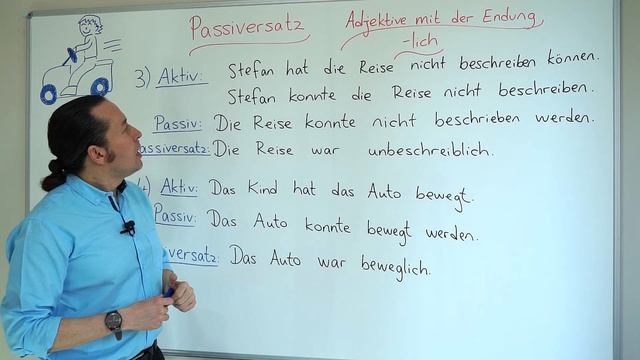 Passiversatz
Adjektive mit der Endung
-lich
3) Aktiv: Stefan hat die Reise nicht beschreiben können.
Stefan konnte die Reise nicht beschreiben.
Passiv: Die Reise konnte nicht beschrieben werden.
assiversatz: Die Reise war unbeschreiblich.
4) Aktiv: Das Kind hat das Auto bewegt.
Passiv: Das Auto konnte bewegt werden.
versatz: Das Auto war beweglich.